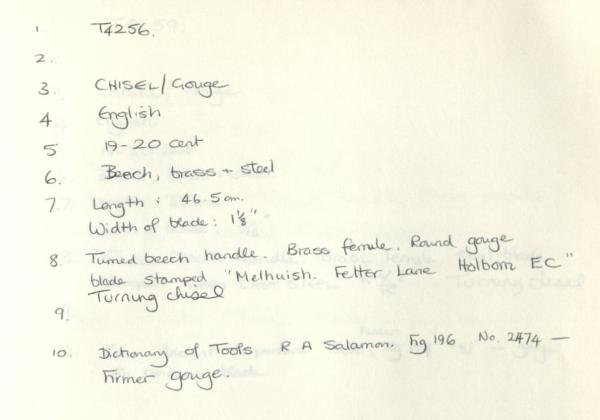 1. T4256.
2.
3. CHISEL/Gouge
4 English
5 19-20 cent
6. Beech, brass + steel
7. Length : 46.5cm.
Width of blade: 1 1/8"
8. Turned beech handle. Brass ferrule. Round gouge
blade stamped "Melhuish. Fetter Lane Holborn EC"
Turning chisel
9.
10. Dictionary of Tools R A Salaman. Fig 196 No. 2474 —
Firmer gouge.